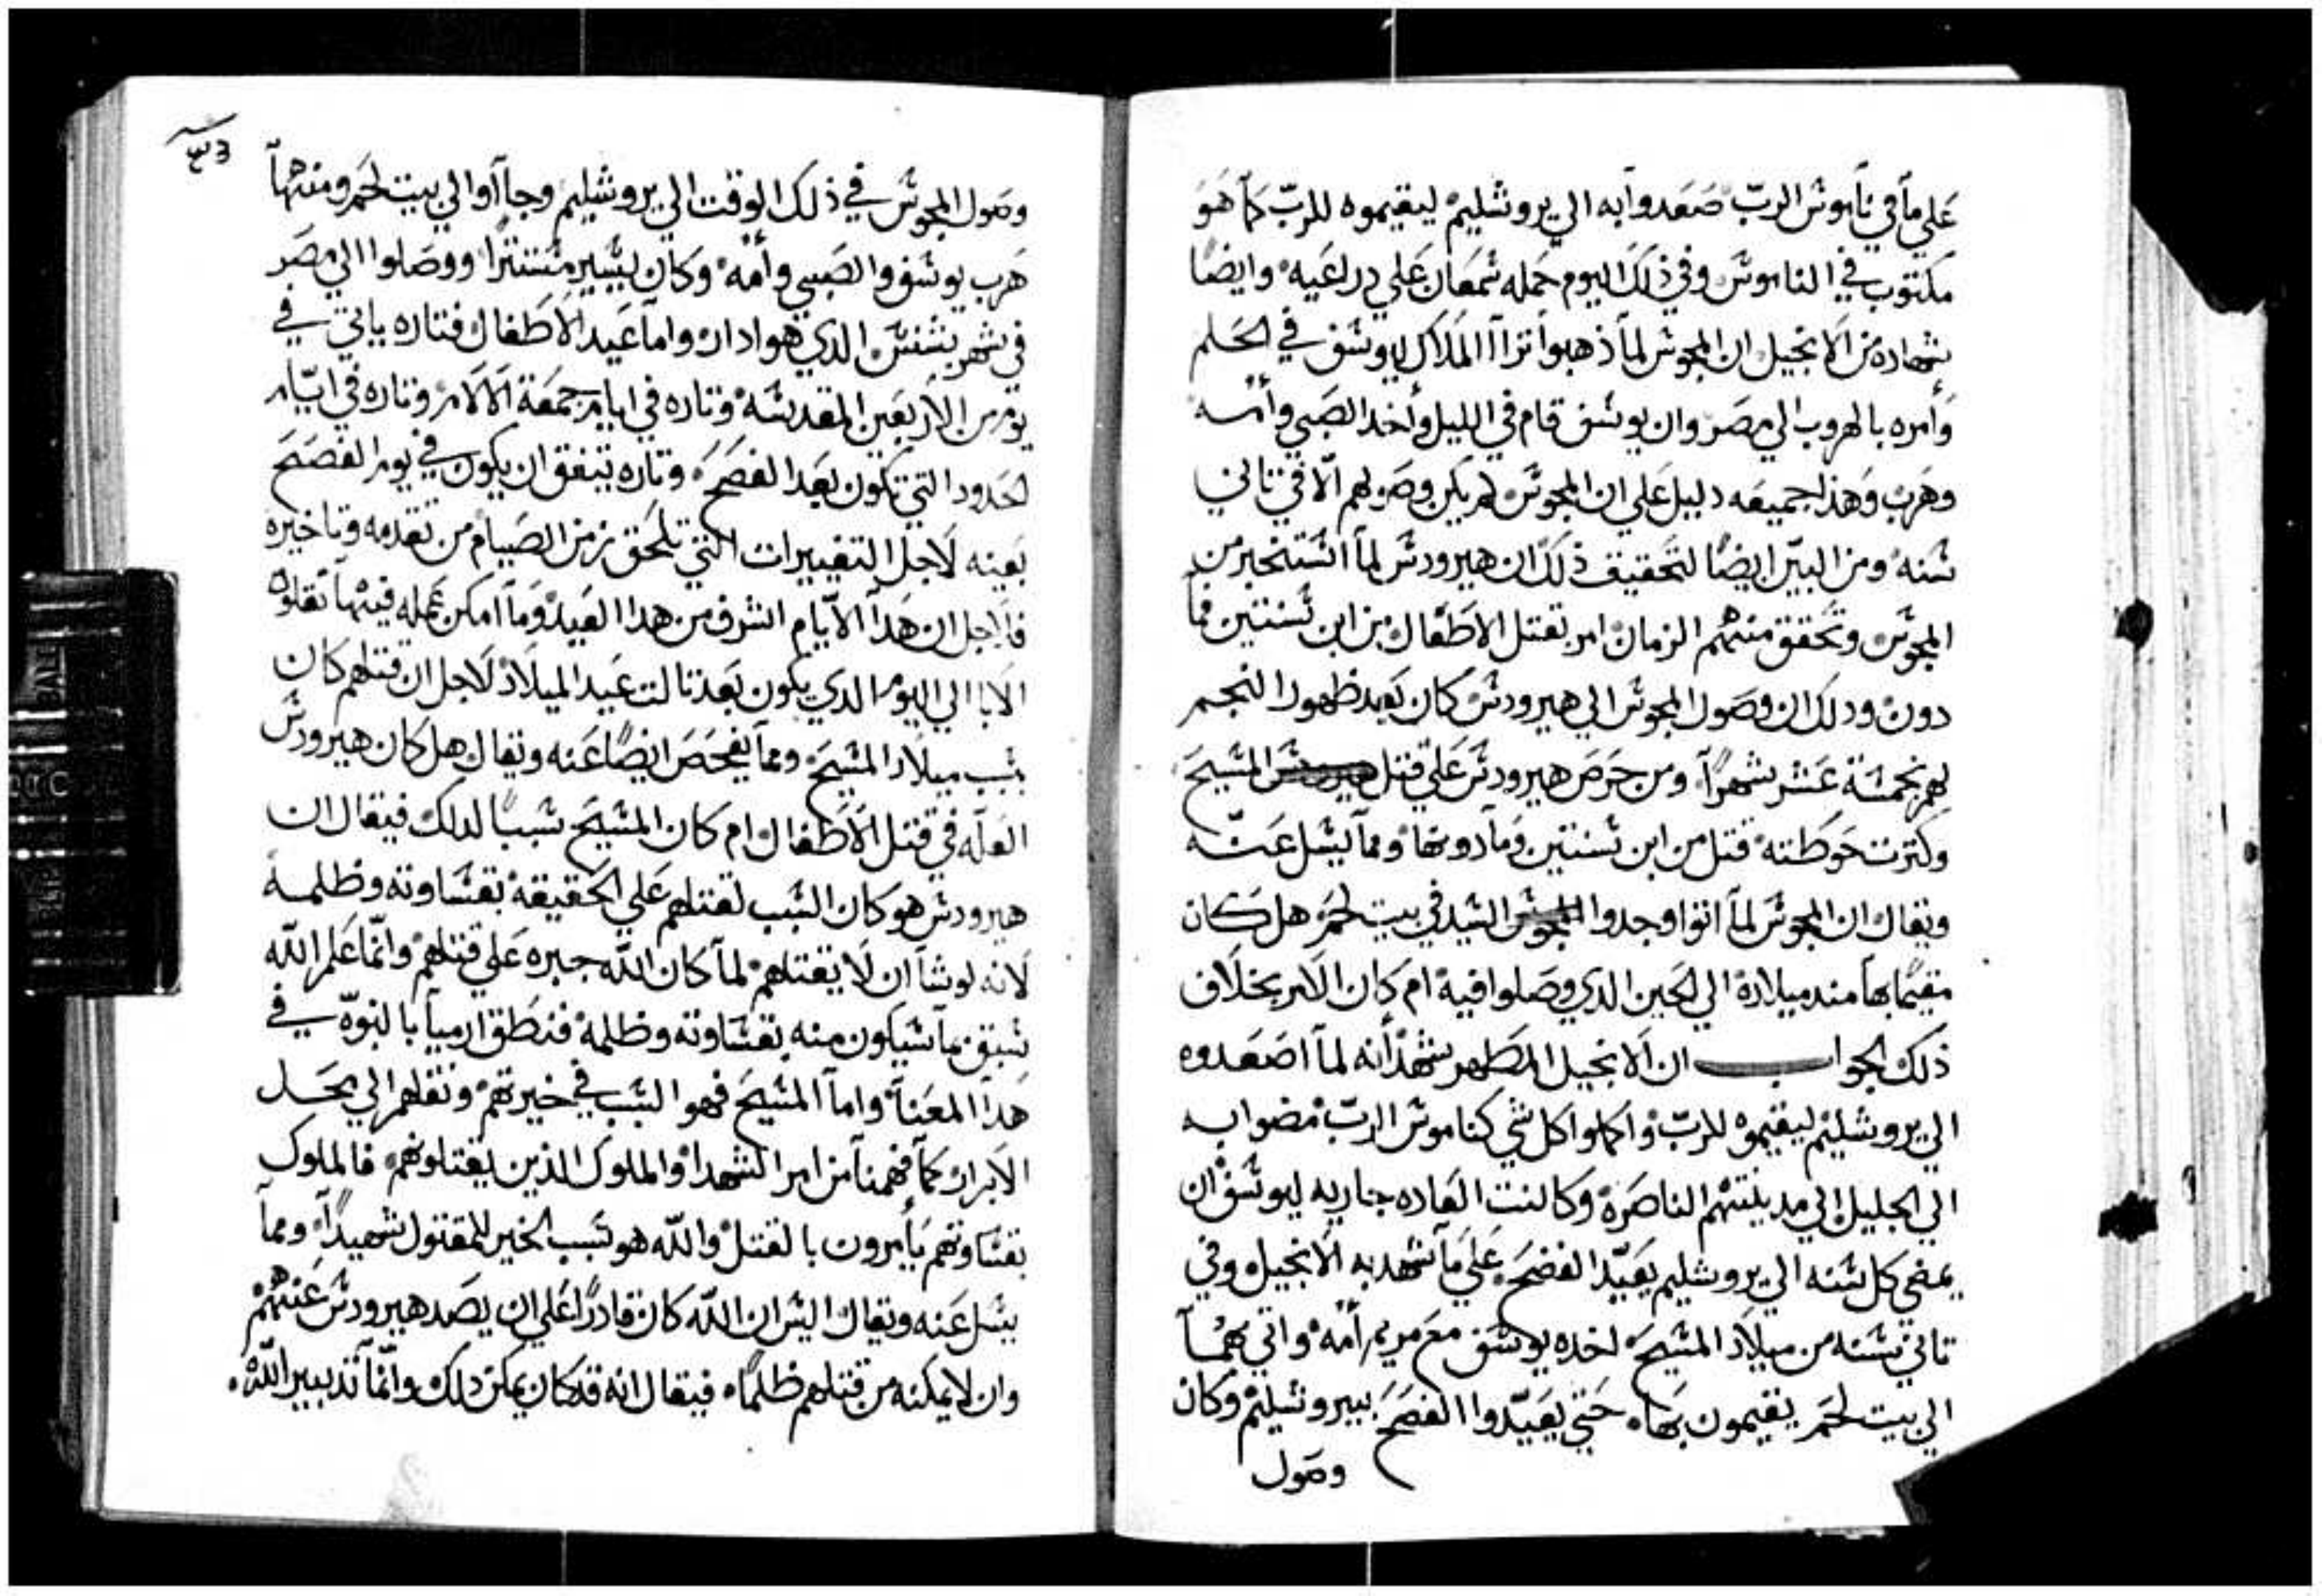 علي ما في ناموس الرب صعدوا به الي يروشليم ليقيموه للرب كما هو
مكتوب في الناموس وفي ذلك اليوم حمله سمعان علي دراعيه وايضا
شهاده من الانجيل ان المجوس لما ذهبوا تراا الملاك ليوسف في الحلم
وأمره بالهروب الي مصر وان يوسف قام في الليل وأخد الصبي وأمه
وهرب وهذا جميعه دليل علي ان المجوس لم يكن وصولهم الا في تاني
سنه ومن البين ايضا لتحقيق ذلك ان هيرودس لما استخبر من
المجوس وتحقق منهم الزمان امر بقتل الاطفال من ابن سنتين فما
دون ودلك ان وصول المجوس الي هيرودس كان بعد ظهور النجم
لهم بخمسة عشر شهرا ومن حرص هيرودس علي قتل المسيح
وكترت حوطته قتل من ابن سنتين وما دونها ومما يسل عنه
ويقال ان المجوس لما اتوا وجدوا السيد في بيت لحم هل كان
مقيما بها مند ميلاده الي الحين الدي وصلوا فيه ام كان الامر بخلاف
ذلك الجواب ان الانجيل المطهر يشهد أنه لما اصعدوه
الي يروشليم ليقيموه للرب واكملوا كل شي كناموس الرب مضوا به
الي الجليل الي مدينتهم الناصرة وكانت العاده جاريه ليوسف ان
يمضي كل سنه الي يروشليم يعيد الفصح علي ما شهد به الانجيل وفي
تاني سنه من ميلاد المسيح اخده يوسف مع مريم أمه واتي بهما
الي بيت لحم يقيمون بها حتي يعيدوا الفصح بيروشليم وكان
وصول
٤٣
وصول المجوس في ذلك الوقت الي يروشليم وجاأوا الي بيت لحم ومنها
هرب يوسف والصبي وأمه وكان يسير مستترا ووصلوا الي مصر
في شهر بشنس الدي هو ادار واما عيد الاطفال فتاره ياتي في
يوم من الاربعين المقدسه وتاره في ايام جمعة الالام وتاره في ايام
الحدود التي تكون بعد الفصح وتاره يتفق ان يكون في يوم الفصح
بعينه لاجل التغييرات التي تلحق زمن الصيام من تقدمه وتاخيره
فلاجل ان هدا الايام اشرف من هدا العيد وما امكن عمله فيها نقلوه
الابا الي اليوم الدي يكون بعد تالت عيد الميلاد لاجل ان قتلهم كان
بسبب ميلاد المسيح ومما يفحص ايضا عنه ويقال هل كان هيرودس
العله في قتل الاطفال ام كان المسيح سببا لدلك فيقال ان
هيرودس هو كان السبب لقتلهم علي الحقيقه بقساوته وظلمه
لانه لو شا ان لا يقتلهم لما كان الله جبره علي قتلهم وانما علم الله
سبق بما سيكون منه بقساوته وظلمه فنطق ارميا بالنبوه في
هدا المعنا واما المسيح فهو السبب في خيرتهم ونقلهم الي محل
الابرار كما فهمنا من امر الشهدا والملوك الدين يقتلونهم فالملوك
بقساوتهم يأمرون بالقتل والله هو سبب الخير للمقتول شهيدا ومما
يسل عنه ويقال اليس ان الله كان قادرا علي ان يصد هيرودس عنهم
وان لا يمكنه من قتلهم ظلما فيقال انه قد كان يمكن دلك وانما تدبير الله